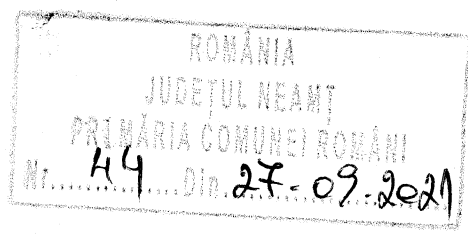 ROMÂNIA
JUDEŢUL NEAMŢ
PRIMĂRIA COMUNEI ROMÂNI
Nr. 44 Din 27-09-2021